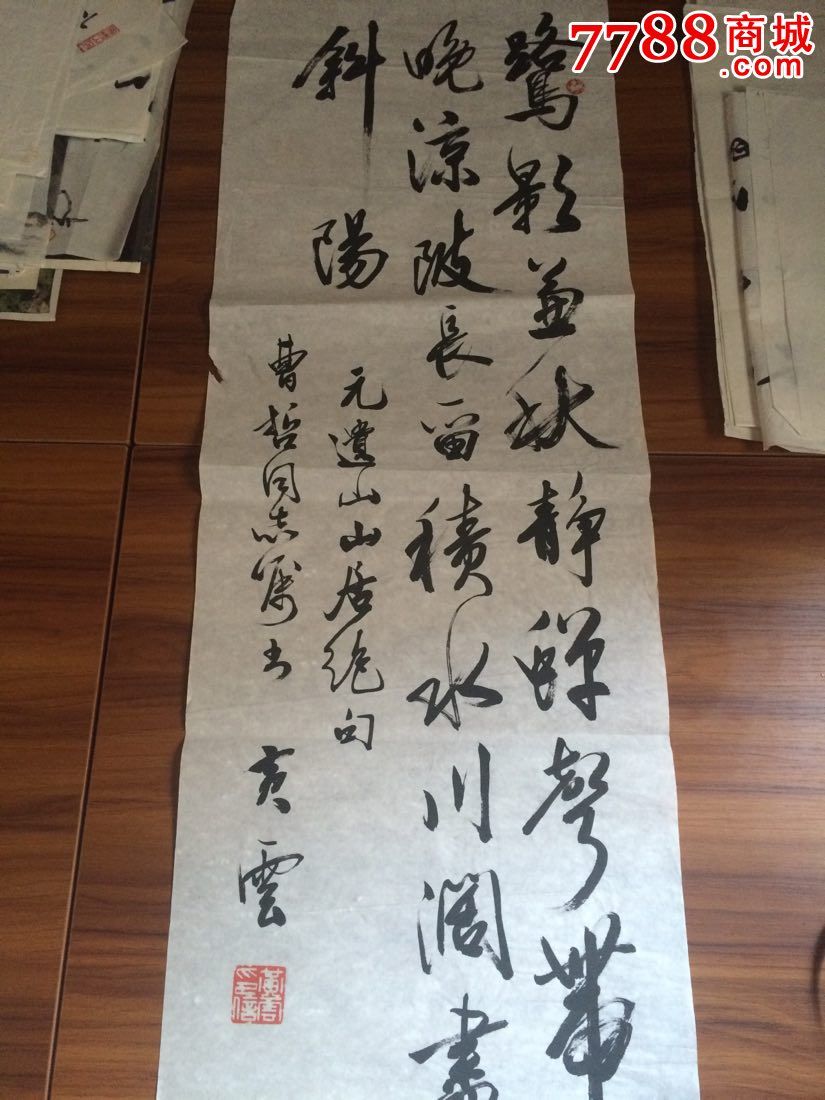 7788商城
.com
鷺影兼秋静蟬聲帶
晚涼陂長留積水川濶盡
斜陽
元遺山山居絶句
曹哲同志属书 黄雲